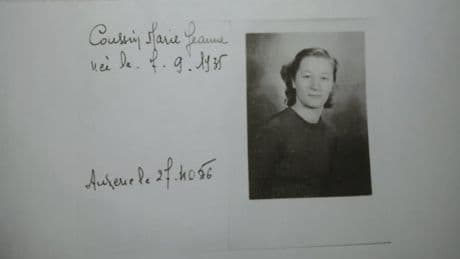 Coussin Marie Jeanne
née le . 7 . 9 . 1935
Auxerre le 27.10.56